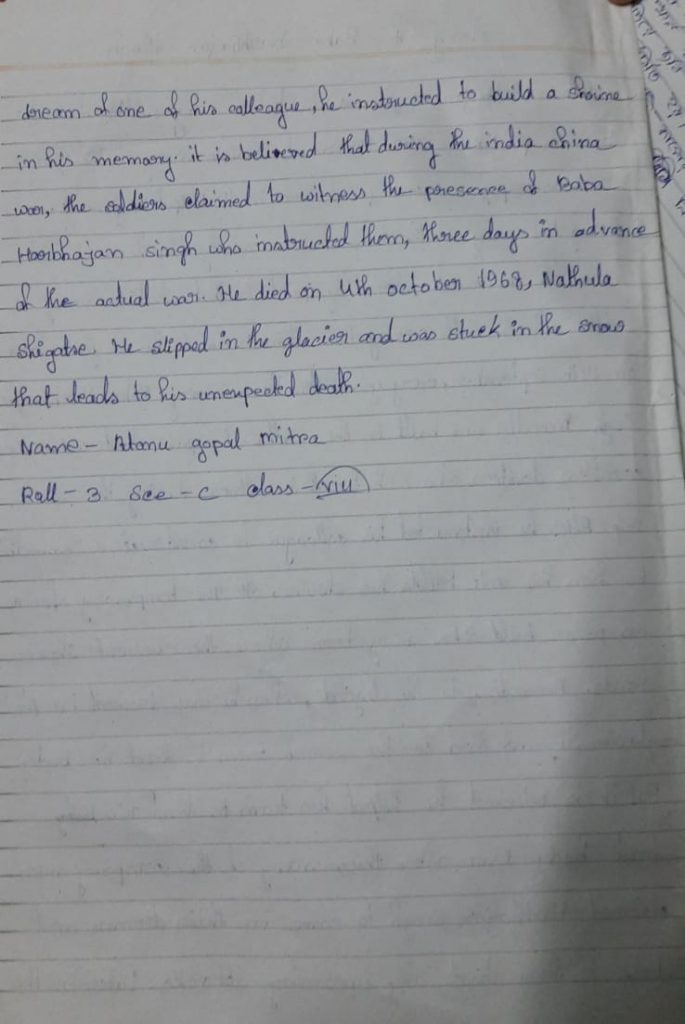 dream of one of his colleague, he instructed to build a shrine
in his memory. it is believed that during the india china
war, the soldiers claimed to witness the presence of Baba
Harbhajan singh who instructed them, three days in advance
of the actual war. He died on 4th october 1968, Nathula
Shigatse. He slipped in the glacier and was stuck in the snow
that leads to his unexpected death.
Name - Atanu gopal mitra
Roll - 3 Sec - C class - VIII